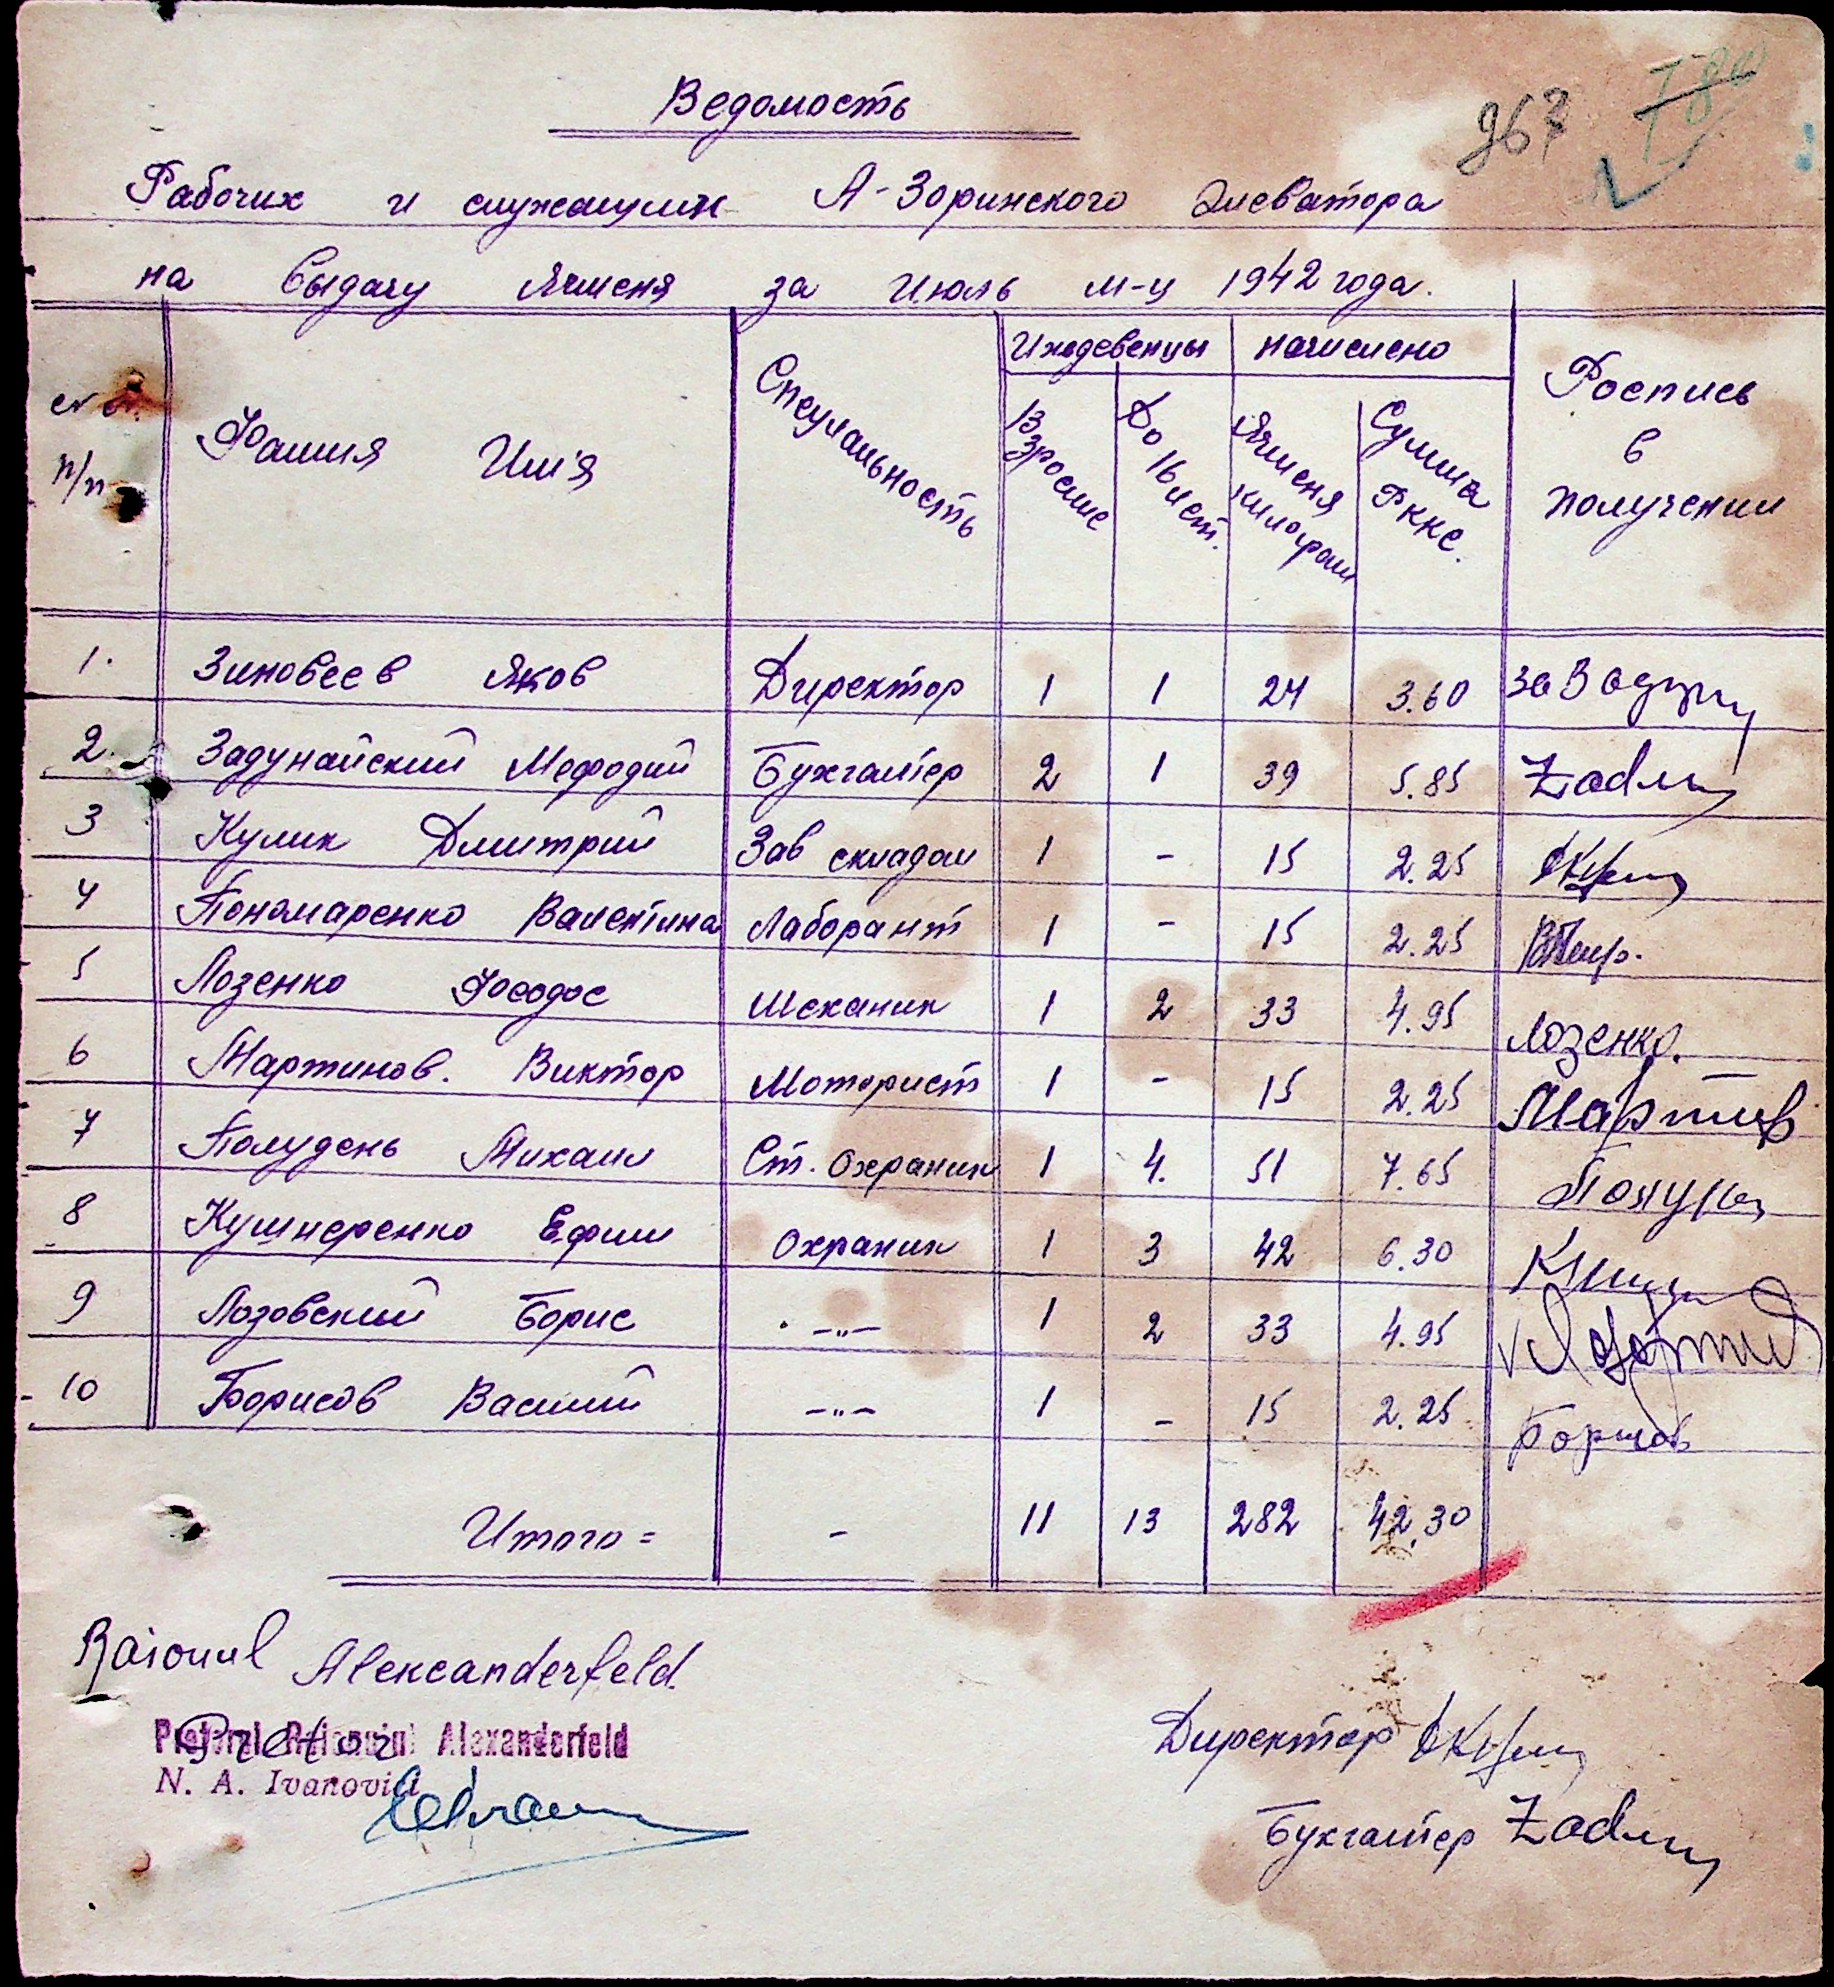 Ведомость
967
Рабочих и служащих А-Зоринского Элеватора
на выдачу Ячменя за Июль м-ц 1942 года.
№№ п/п Фамия Имя Специальность Иждевенцы начислено Роспись в получении
Взрослые До 16 лет. Ячменя килограм Сумма Рккс.
1. Зиновеев Яков Директор 1 1 24 3.60 за Задун
2. Задунайский Мефодий Бухгалтер 2 1 39 5.85 Zadun
3 Кулик Дмитрий Зав складом 1 - 15 2.25
4 Пономаренко Валентина Лаборант 1 - 15 2.25
5 Лозенко Феодос Механик 1 2 33 4.95 Лозенко.
6 Мартинов. Виктор Моторист 1 - 15 2.25
7 Полудень Михаил Ст. Охраник 1 4. 51 7.65
8 Кушнеренко Ефим Охраник 1 3 42 6.30
9 Лозовский Борис -"- 1 2 33 4.95
10 Борисов Василий -"- 1 - 15 2.25 Борисов
Итого = - 11 13 282 42.30
Raionul Alexcanderfeld.
Pretorul Raionului Alexanderfeld
Pretor
N. A. Ivanovici
Директор
Бухгалтер Zadun